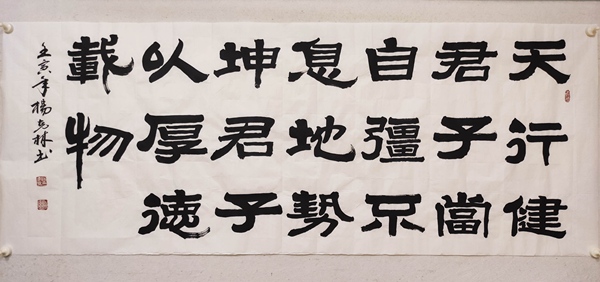 天行健
君子當
自彊不
息地勢
坤君子
以厚徳
載物
壬寅年楊林书